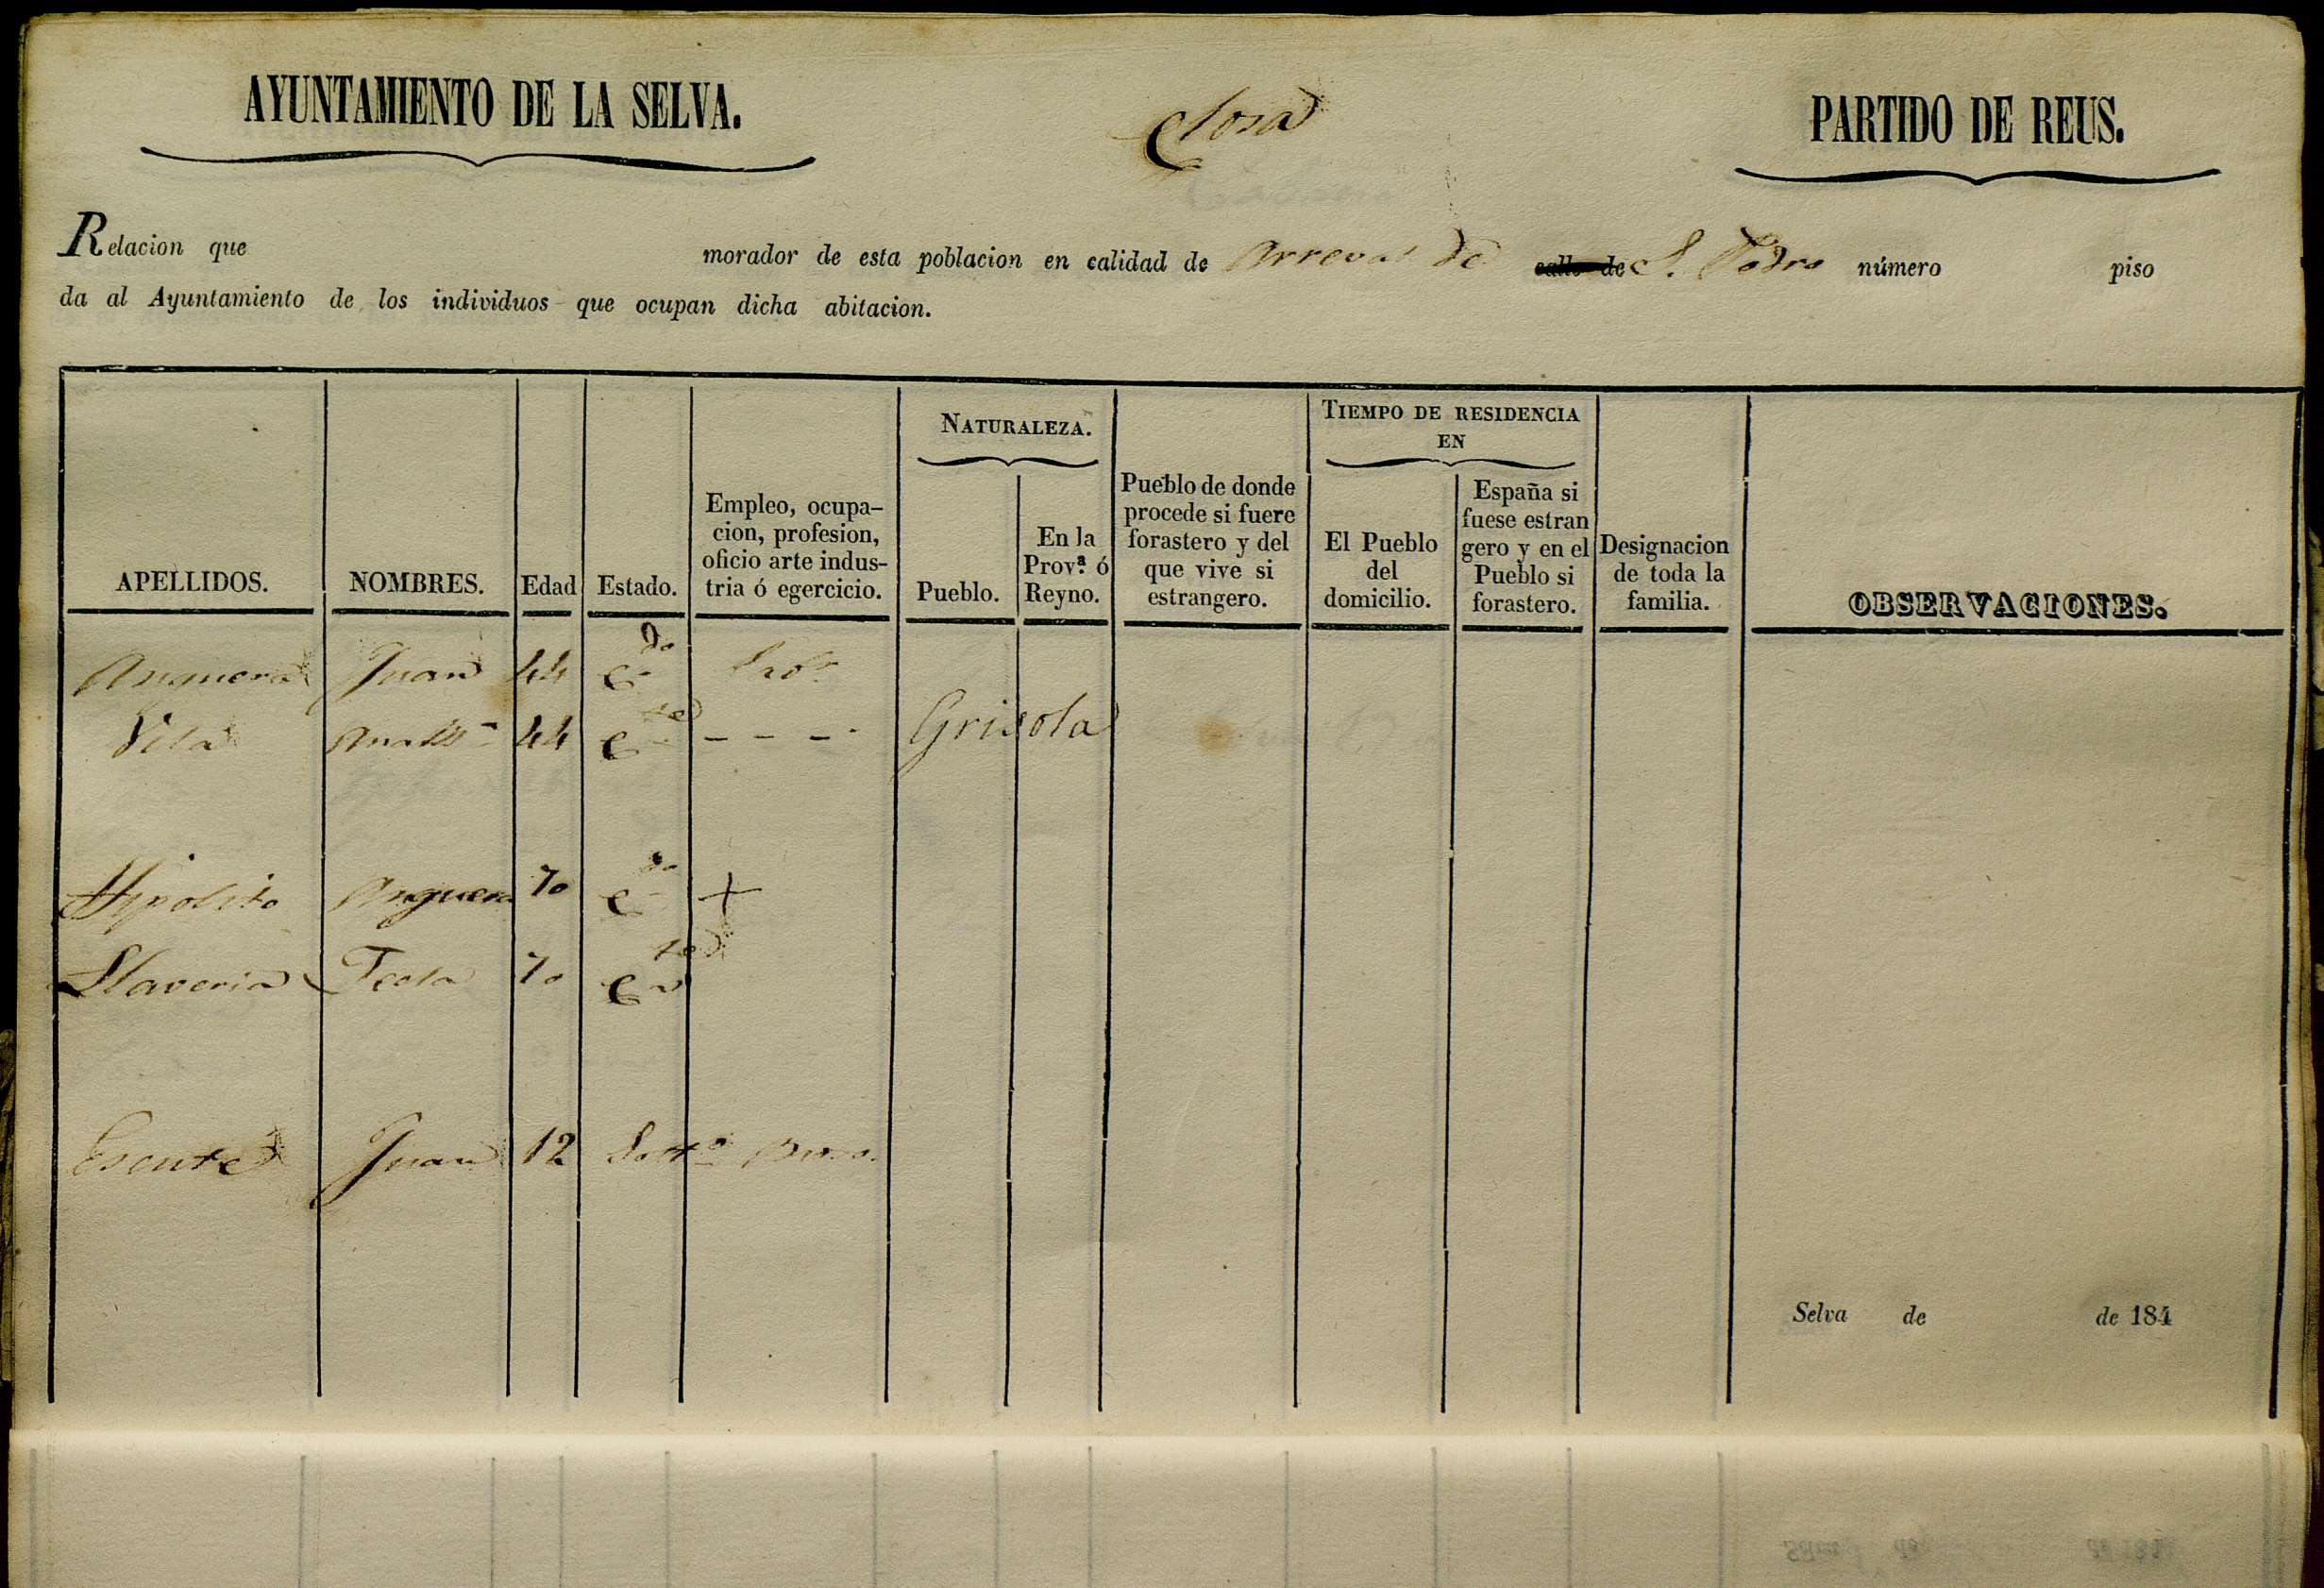 AYUNTAMIENTO DE LA SELVA.
Closa
PARTIDO DE REUS.
Relacion que morador de esta poblacion en calidad de Arreval de calle de S. Pedro número piso
da al Ayuntamiento de los individuos que ocupan dicha abitacion.
APELLIDOS.
NOMBRES.
Edad
Estado.
Empleo, ocupa-
cion, profesion,
oficio arte indus-
tria ó egercicio.
NATURALEZA.
Pueblo.
En la
Prov.ª ó
Reyno.
Pueblo de donde
procede si fuere
forastero y del
que vive si
estrangero.
TIEMPO DE RESIDENCIA
EN
El Pueblo
del
domicilio.
España si
fuese estran
gero y en el
Pueblo si
forastero.
Designacion
de toda la
familia.
OBSERVACIONES.
Anguera Juan 44 C.do Lab.r
Vila 44 C.da - - - - Grisola
Hipolito Anguera 70 C.do +
Llaveria Tecla 70 C.da
Juan 12 Solt.o
Selva de de 184